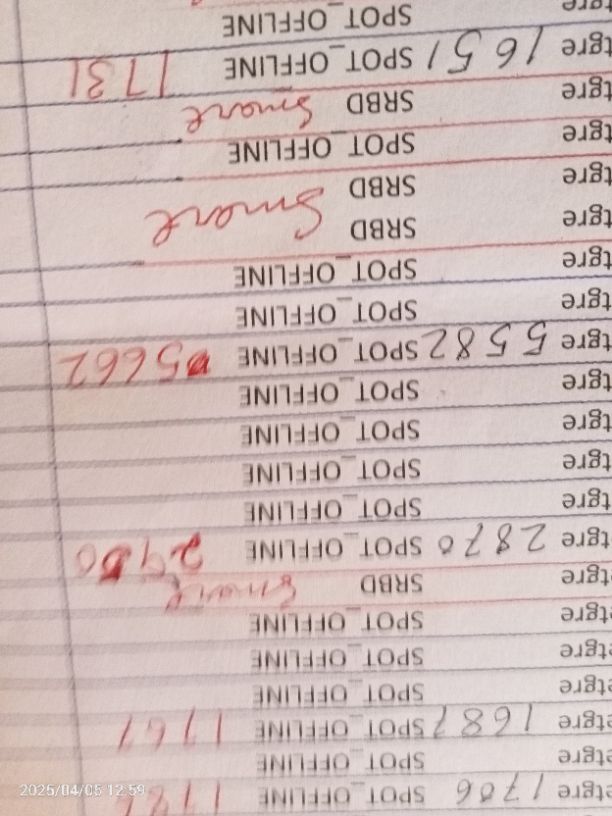 etgre 1706 SPOT_OFFLINE
etgre SPOT_OFFLINE
etgre 1687 SPOT_OFFLINE 1767
etgre SPOT_OFFLINE
etgre SPOT_OFFLINE
etgre SPOT_OFFLINE
etgre SRBD Smart
tgre 2870 SPOT_OFFLINE
tgre SPOT_OFFLINE
tgre SPOT_OFFLINE
tgre SPOT_OFFLINE
tgre SPOT_OFFLINE
tgre 5582 SPOT_OFFLINE 5662
tgre SPOT_OFFLINE
tgre SPOT_OFFLINE
tgre SRBD Smart
tgre SRBD
tgre SPOT_OFFLINE
tgre SRBD Smart
tgre 1651 SPOT_OFFLINE 1731
tgre SPOT_OFFLINE
2025/04/05 12:59